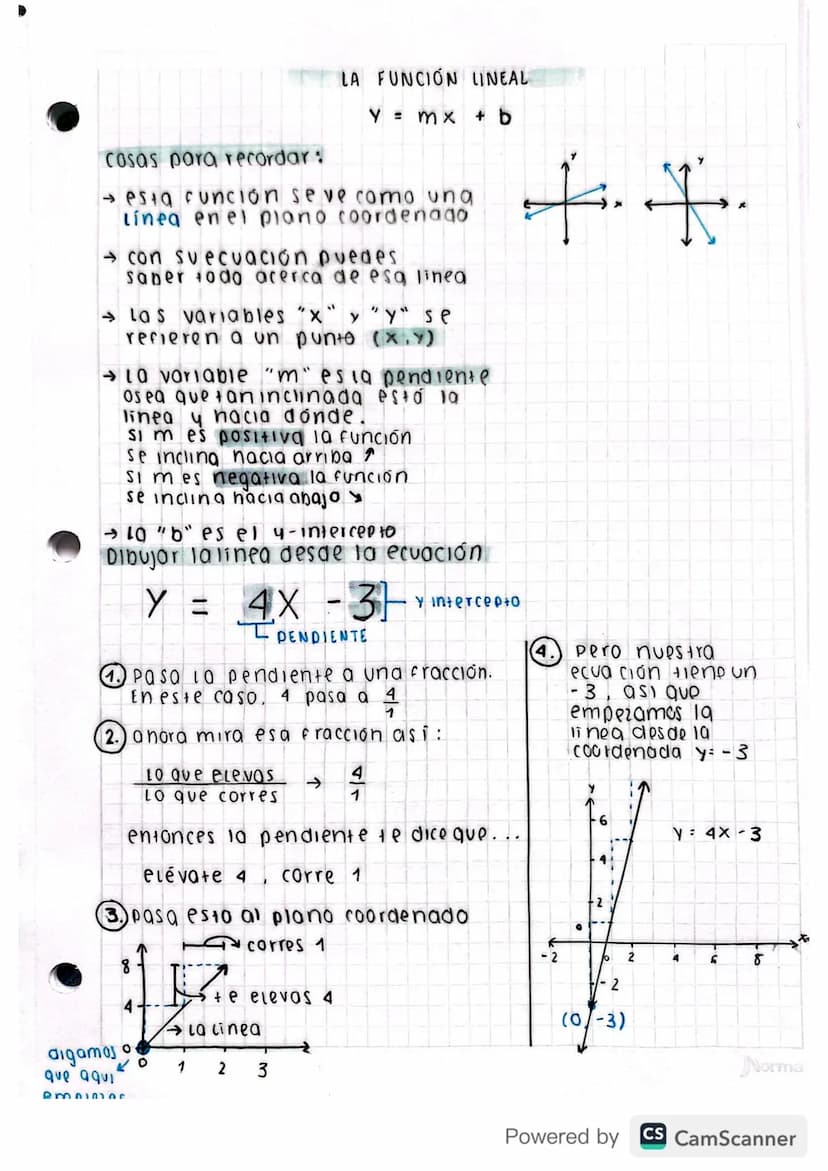 LA FUNCIÓN LINEAL
Y = mx + b
cosas para recordar:
→ esta función se ve como una
línea en el plano coordenado
→ con su ecuación puedes
saber todo acerca de esa línea
→ Las variables "x" y "y" se
refieren a un punto (x,y)
→ La variable "m" es la pendiente
osea que tan inclinada está la
línea y hacia dónde.
si m es positiva la función
se inclina hacia arriba ↗
si m es negativa la función
se inclina hacia abajo ↘
→ La "b" es el y-intercepto
Dibujar la línea desde la ecuación
Y = 4X - 3 Y intercepto
PENDIENTE
1. Pasa la pendiente a una fracción.
En este caso, 4 pasa a 4/1
2. ahora mira esa fracción así:
lo que elevas → 4
lo que corres 1
entonces la pendiente te dice que...
elévate 4, corre 1
3. pasa esto al plano coordenado
corres 1
te elevas 4
→ La línea
8
4
0
0 1 2 3
digamos
que aquí
4. pero nuestra
ecuación tiene un
-3, así que
empezamos la
línea desde la
coordenada y=-3
y
6
4
2
0
-2 0 2 4 6 8 x
-2
y = 4x - 3
(0,-3)
x
y
x
y
Norma
Powered by CS CamScanner